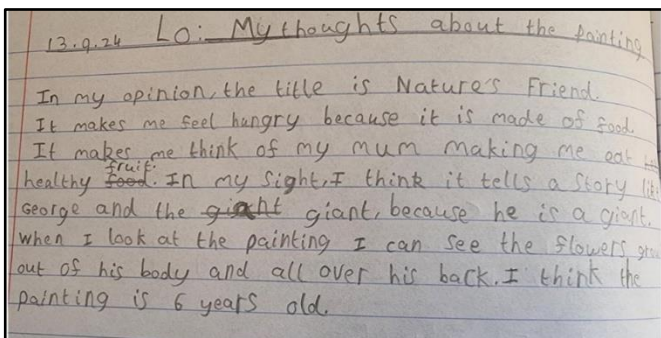 13.9.24 Lo: My thoughts about the painting
In my opinion, the title is Nature's Friend.
It makes me feel hungry because it is made of food.
It makes me think of my mum making me eat
healthy food. fruit. In my sight, I think it tells a story
George and the giaht giant, because he is a giant.
when I look at the painting I can see the flowers
out of his body and all over his back. I think the
painting is 6 years old.